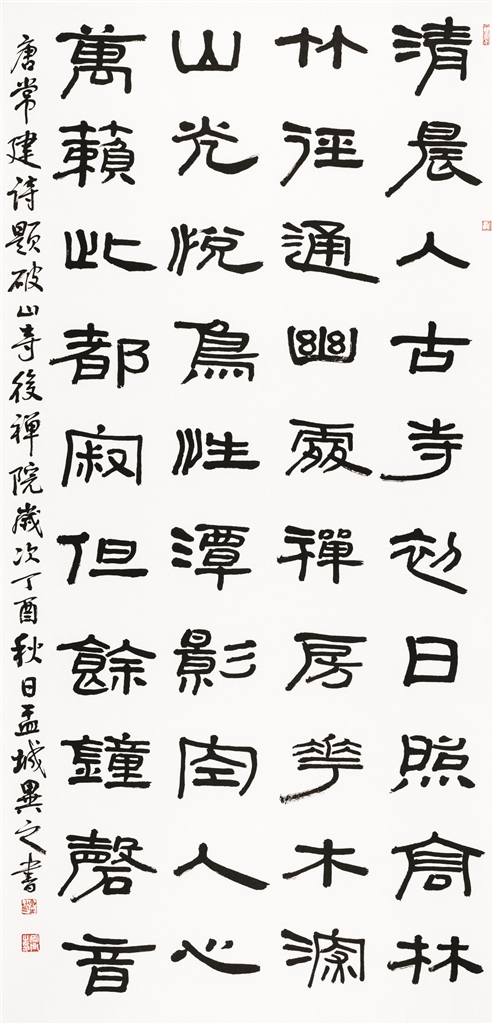 清晨人古寺初日照高林
竹径通幽處禪房花木深
山光悦鳥性潭影空人心
萬籟此都寂但餘鐘磬音
唐常建诗題破山寺後禅院歲次丁酉秋日孟城異之書